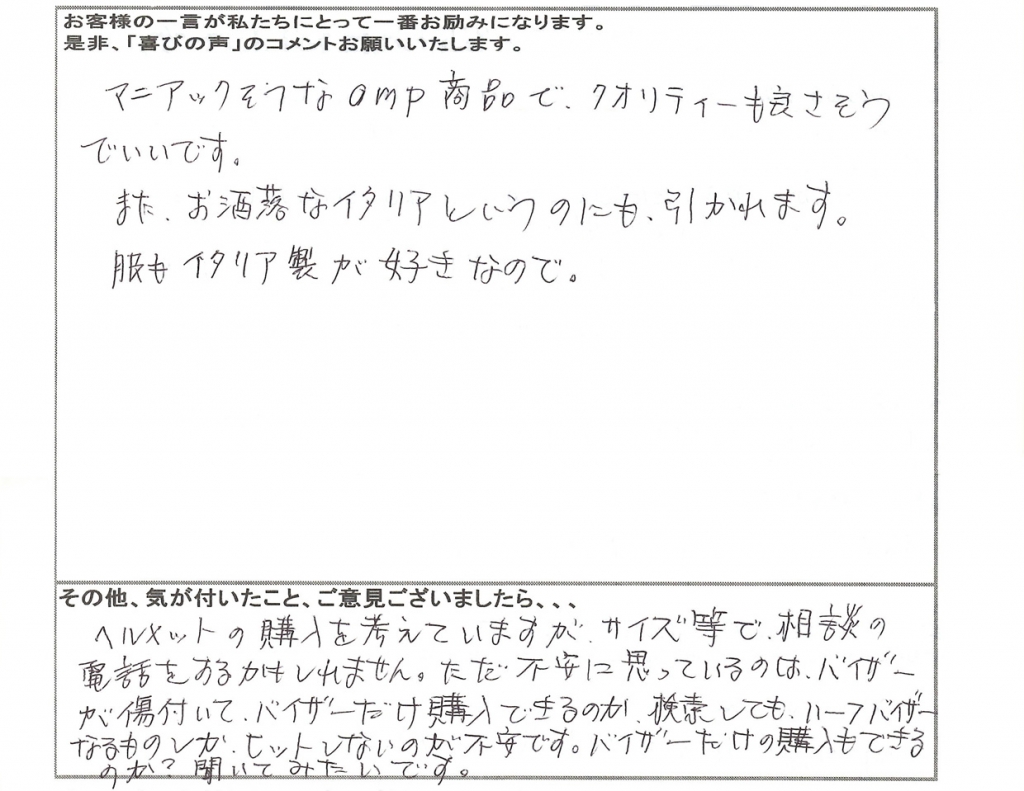 お客様の一言が私たちにとって一番お励みになります。
是非、「喜びの声」のコメントお願いいたします。
マニアックそうなamp商品で、クオリティーも良さそう
でいいです。
また、お洒落なイタリアというのにも、引かれます。
服もイタリア製が好きなので。
その他、気が付いたこと、ご意見ございましたら、、、
ヘルメットの購入を考えていますが、サイズ等で、相談の
電話をするかもしれません。ただ不安に思っているのは、バイザー
が傷付いて、バイザーだけ購入できるのか、検索しても、ハーフバイザー
なるものしか、ヒットしないのが不安です。バイザーだけの購入もできる
のか?聞いてみたいです。